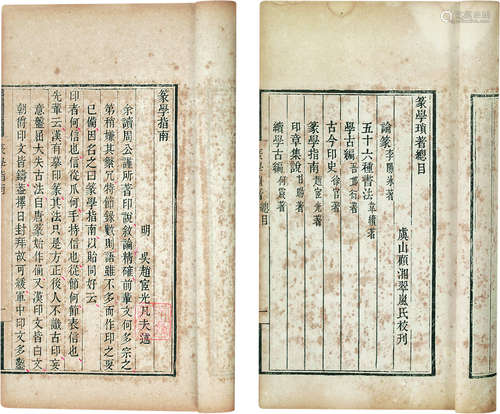 篆學瑣著總目
虞山顧湘翠嵐氏校刊
論篆 李陽冰著
五十六種書法 韋續著
學古編 吾邱衍著
古今印史 徐官著
篆學指南 趙宧光著
印章集說 甘暘著
續學古編 何震著
篆學瑣著總目
一
篆學指南
明 吳趙宧光凡夫述
余讀周公謹所著印說敘論精確前輩文何多宗之
弟稍嫌其繁冗特節錄數則語雖不多而作印之要
已備因名之曰篆學指南以貽同好云
印者何信也信從爪何手持信也從節何節表信也
先輩云漢有摹印篆其法只是方正後人不識古印妄
意盤屈大失古法自唐篆始作偷又漢印文皆白文
朝爵印文皆鑄葢擇日封拜故可緩軍中印文多鑿
篆學指南
一